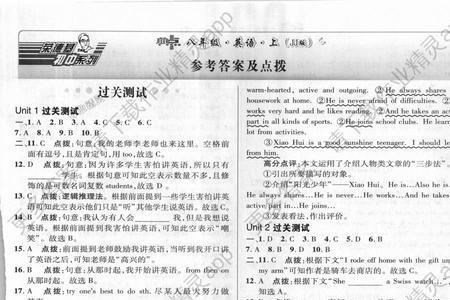 荣德基
初中系列
典中点 八年级·英语·上(JJ版)
参考答案及点拨
过关测试
Unit 1 过关测试
一、1. A 2. B 3. A 4. C 5. C 6. C
7. A 8. A 9. B 10. B
二、11. C 点拨:句意:我的老李老师也来这里。空格前
面有逗号,且是肯定句,用 too,故选 C。
12. D 点拨:句意:因为许多学生害怕讲英语,所以只有
学生。根据句意可知此空表示数量不多,且修
饰的是可数名词复数 students,故选 D。
13. C 点拨:逻辑推理法。根据前面提到一些学生害怕讲英
语可知此空表示他们只是"听"其他学生说英语。故选 C。
14. D 点拨:句意:我认为有人会____我,但是我想说
英语。根据前面提到我害怕讲英语,可知此空表示"嘲
笑"。故选 D。
15. A 点拨:前面提到老师鼓励我讲英语,当听到我开口讲
了英语之后,可知老师是"高兴的"。
16. B 点拨:句意:从那时起,我开始讲英语。from then on
从那时起。故选 B。
17. A 点拨:try one's best to do sth. 尽某人最大努力做
warm-hearted, active and outgoing. ②He is always shares
housework at home. ②He is never afraid of difficulties. ②
works very hard and he likes reading. ②He always takes an ac
part in all kinds of sports. ②He joins school clubs. He learn
lot from activities.
③Xiao Hui is a good sunshine teenager. I should le
from him.
高分点评:本文运用了介绍人物类文章的"三步法"。
①引出所要描写的对象。
②介绍"阳光少年"——Xiao Hui, He is...Also he is
always shares...He is never...He works...And He takes
active part in...He joins...
③发表看法,作出评价。
Unit 2 过关测试
一、1. D 2. C 3. C 4. D 5. B 6. B
7. A 8. B 9. D 10. B
二、11. C 点拨:根据下文"I rode off home with the gift up
my arm"可知作者是骑车去商店的。故选 C。
12. A 点拨:根据下文"She ____ a Swiss watch..."